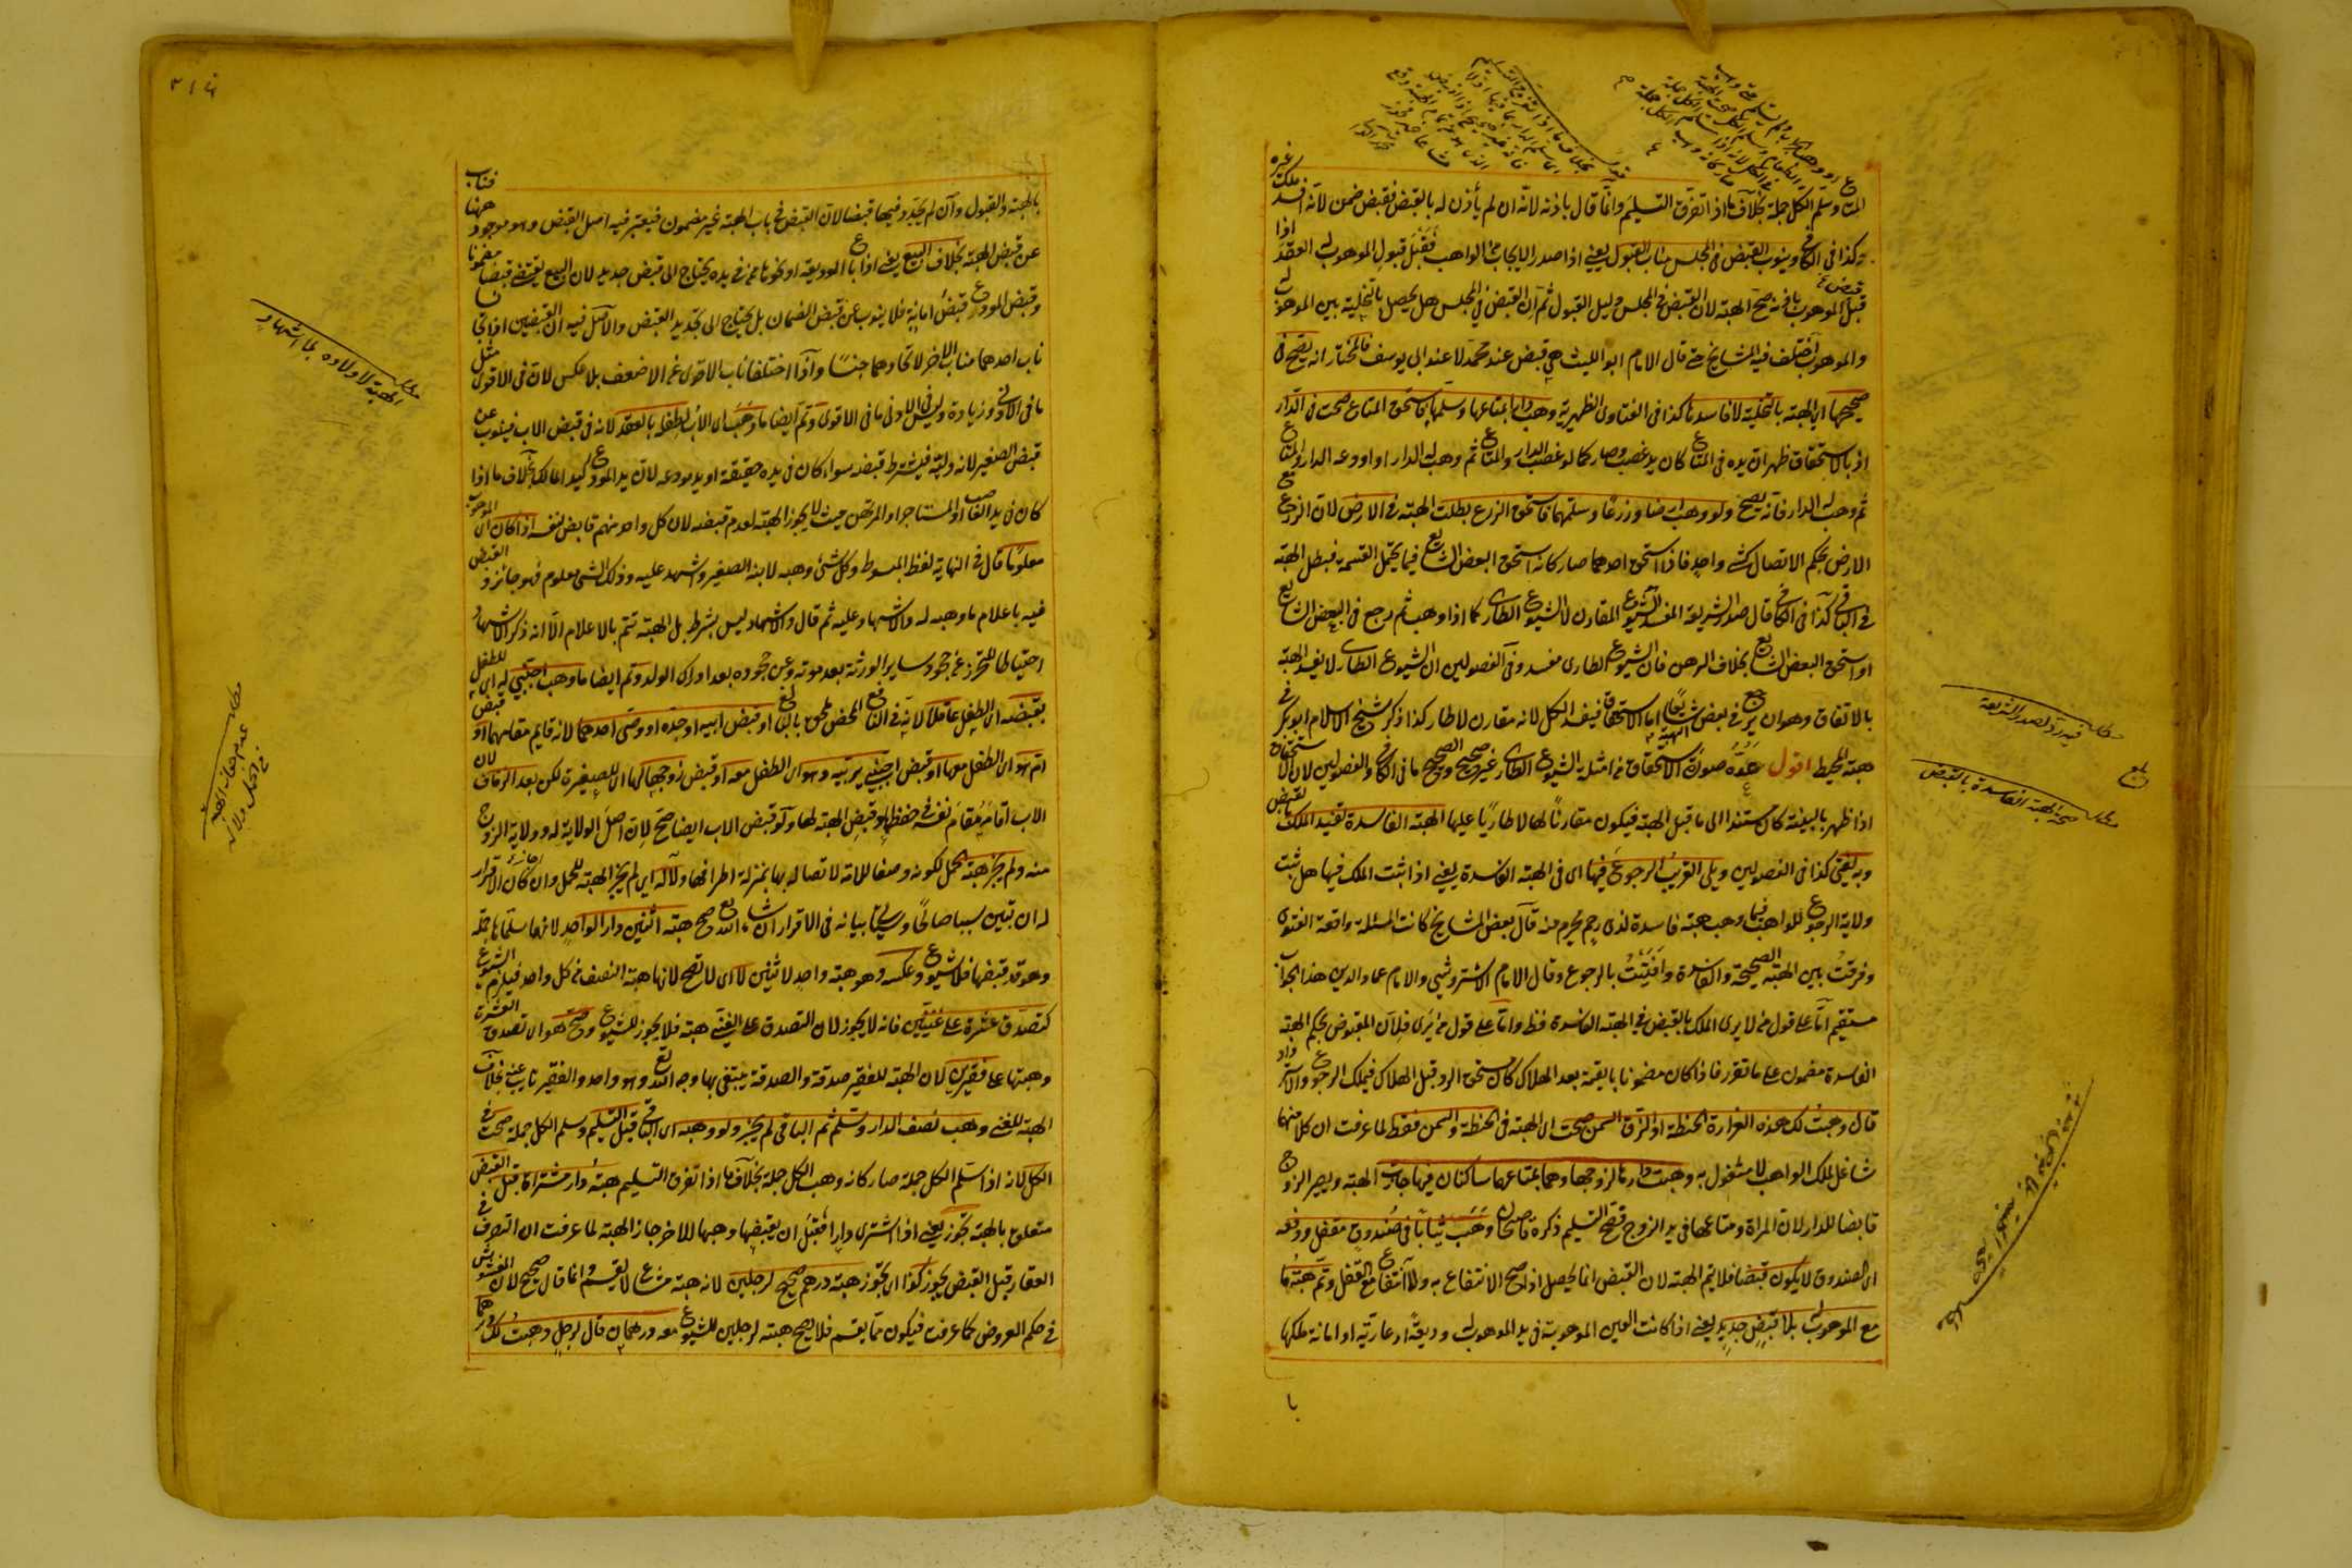 المتاع وسلم الكل جملة بخلاف ما اذا تفرق التسليم وانما قال باذنه لانه ان لم يأذن له بالقبض فقبض ضمن لانه افسد ملك غيره
كذا فى الكافى وينوب القبض فى المجلس مناب القبول يعنى اذا صدر الايجاب من الواهب فقبل قبول الموهوب له العقد اذا
قبض الموهوب له صح الهبة لان القبض فى المجلس دليل القبول ثم ان القبض فى المجلس هل يحصل بالتخلية بين الموهوب له
والموهوب اختلف فيه المشايخ حتى قال الامام ابو الليث هى قبض عند محمد لا عند ابى يوسف فالمختار انه يصح فى
صحيحها اى الهبة بالتخلية لا فاسدها كذا فى الفتاوى الظهيرية وهب دارا بمتاعها وسلمها فاستحق المتاع صحت فى الدار
اذ بالاستحقاق ظهر ان يده فى المتاع كان يد غصب وصار كما لو غصب الدار والمتاع ثم وهب له الدار او اودعه الدار والمتاع
ثم وهب له الدار فانه يصح ولو وهب ارضا وزرعا وسلمهما فاستحق الزرع بطلت الهبة فى الارض لان الزرع مع
الارض بحكم الاتصال كشىء واحد فاذا استحق احدهما صار كانه استحق البعض الشايع فيما يحتمل القسمة فبطل الهبة
فى الباقى كذا فى الكافى قال صدر الشريعة المفسد الشيوع المقارن لا الشيوع الطارى كما اذا وهب ثم رجع فى البعض الشايع
او استحق البعض الشايع بخلاف الرهن فان الشيوع الطارى مفسد وفى الفصولين ان الشيوع الطارى لا يفسد الهبة
بالاتفاق وهو ان يرجع فى بعض الهبة شايعا اما الاستحقاق فيفسد الكل لانه مقارن لا طار كذا ذكره شيخ الاسلام ابو بكر فى
هبة المحيط اقول عده صورة الاستحقاق فى امثلة الشيوع الطارى غير صحيح والصحيح ما فى الكافى والفصولين لان الاستحقاق
اذا ظهر بالبينة كان مستندا الى ما قبل الهبة فيكون مقارنا لها لا طاريا عليها الهبة الفاسدة تفيد الملك بالقبض
وبه يفتى كذا فى الفصولين ويلى القريب الرجوع فيها اى فى الهبة الفاسدة يعنى اذا ثبت الملك فيها هل ثبت
ولاية الرجوع للواهب فيما وهب هبة فاسدة لذى رحم محرم منه قال بعض المشايخ كانت المسئلة واقعة الفتوى
وفرقت بين الهبة الصحيحة والفاسدة وافتيت بالرجوع وقال الامام الاستروشنى والامام عماد الدين هذا الجواب
مستقيم اما على قول من لا يرى الملك بالقبض فى الهبة الفاسدة فظ واما على قول من يرى فلان المقبوض بحكم الهبة
الفاسدة مضمون على ما تقرر فاذا كان مضمونا بالقيمة بعد الهلاك كان مستحق الرد قبل الهلاك فيملك الرجوع والاسترداد
قال وهبت لك هذه الغرارة الحنطة او الزق السمن صحت اى الهبة فى الحنطة والسمن فقط لما عرفت ان كلا منهما
شاغل لملك الواهب لا مشغول به وهبت دارها لزوجها وهما بمتاعهما ساكنان فيها جازت الهبة ويصير الزوج
قابضا للدار لان المراة ومتاعها فى يد الزوج فصح التسليم ذكره قاضيخان وهب ثيابا فى صندوق مقفل ودفعه
اى الصندوق لا يكون قبضا فلا يتم الهبة لان القبض انما يحصل اذا صح الانتفاع به ولا انتفاع مع القفل وتم هبة ما
مع الموهوب له بلا قبض جديد يعنى اذا كانت العين الموهوبة فى يد الموهوب له وديعة او عارية او امانة ملكها
با
مطلب فيه رد لصدر الشريعة
بلغ
مطلب صحة الهبة الفاسدة بالقبض
بالهبة والقبول وان لم يجدد فيها قبضا لان القبض فى باب الهبة غير مضمون فيعتبر فيه اصل القبض وهو موجود ههنا فناب
عن قبض الهبة بخلاف البيع يعنى اذا باع الوديعة او نحوها ممن فى يده يحتاج الى قبض جديد لان البيع يقتضى قبضا مضمونا
وقبض المودع قبض امانة فلا ينوب عن قبض الضمان بل يحتاج الى تجديد القبض والاصل فيه ان القبضين اذا تجانسا
ناب احدهما مناب الاخر لاتحادهما جنسا واذا اختلفا ناب الاقوى عن الاضعف بلا عكس لان فى الاقوى مثل
ما فى الادنى وزيادة وليس فى الادنى ما فى الاقوى وتم ايضا ما وهب اى الاب لطفله بالعقد لانه فى قبض الاب فينوب عن
قبض الصغير لانه وليه فيشترط قبضه سواء كان فى يده حقيقة او يد مودعه لان يد المودع كيد المالك بخلاف ما اذا
كان فى يد الغاصب او المستاجر او المرتهن حيث لا يجوز الهبة لعدم قبضه لان كل واحد منهم قابض لنفسه اذا كان اى الموهوب
معلوما قال فى النهاية لفظ المبسوط وكل شئ وهبه لابنه الصغير واشهد عليه وذلك الشئ معلوم فهو جائز والقبض
فيه باعلام ما وهبه له والاشهاد عليه ثم قال والاشهاد ليس بشرط بل الهبة تتم بالاعلام الا انه ذكر الاشهاد
احتياطا للتحرز عن جحود ساير الورثة بعد موته وعن جحوده بعد ادراك الولد وتم ايضا ما وهب اجنبى له اى للطفل
بقبضه اى الطفل عاقلا لانه فى النافع المحض ملحق بالبالغ او قبض ابيه او جده او وصى احدهما لانه قايم مقامهما او قبض
ام هو اى الطفل معها او قبض اجنبى يربيه وهو اى الطفل معه او قبض زوجها لها اى للصغيرة لكن بعد الزفاف لان
الاب اقامه مقام نفسه فى حفظها وقبض الهبة لها ولو قبض الاب ايضا صح لان اصل الولاية له وولاية الزوج
منه ولم يجز هبة الحمل لكونه وصفا للامة لاتصاله بها بمنزلة اطرافها ولا له اى لم يجز الهبة للحمل وان كان الاقرار جائزا
له ان تبين سببا صالحا وسياتى بيانه فى الاقرار ان شاء الله تع صح هبة اثنين دارا لواحد لانهما سلماها جملة
وهو قد قبضها فلا شيوع وعكسه وهو هبة واحد لاثنين لا اى لا تصح لانها هبة النصف من كل واحد فيلزم الشيوع
كتصدق عشرة على غنيين فانه لا يجوز لان التصدق على الغنى هبة فلا يجوز للشيوع وصح هو اى تصدق العشرة
وهبتها على فقيرين لان الهبة للفقير صدقة والصدقة يبتغى بها وجه الله تع وهو واحد والفقير نايب عنه بخلاف
الهبة للغنى وهب نصف الدار وسلم ثم الباقى لم يجز ولو وهبه اى الباقى قبل التسليم وسلم الكل جملة صحت فى
الكل لانه اذا سلم الكل جملة صار كانه وهب الكل جملة بخلاف ما اذا تفرق التسليم هبة دار مشتراة قبل القبض
متعلق بالهبة تجوز يعنى اذا اشترى دارا فقبل ان يقبضها وهبها للاخر جاز الهبة لما عرفت ان التصرف فى
العقار قبل القبض يجوز كذا اى تجوز هبة درهم صحيح لرجلين لانه هبة مشاع لا يقسم وانما قال صحيح لان المغشوش
فى حكم العروض كما عرفت فيكون مما يقسم فلا يصح هبته لرجلين للشيوع معه درهمان قال لرجل وهبت لك درهما
مطلب الهبة لاولاده بلا اشهاد